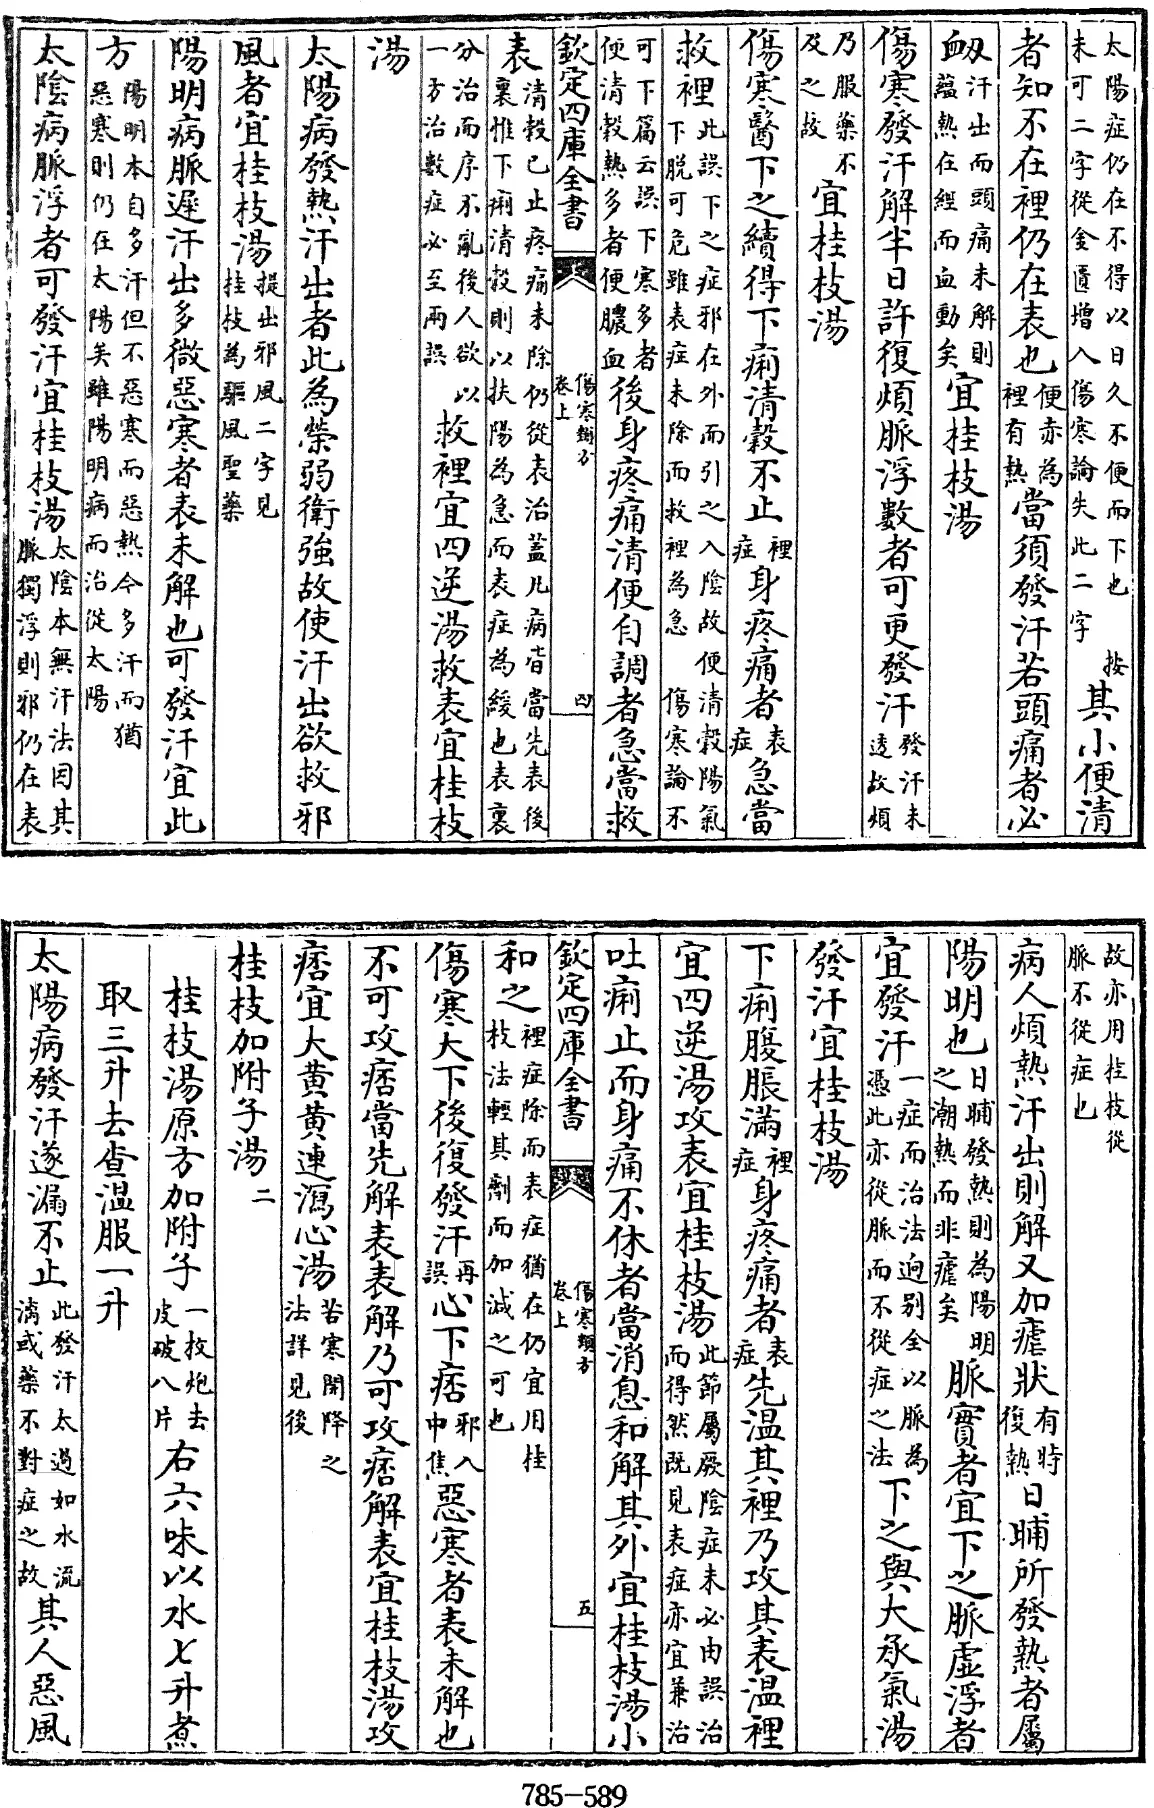 太陽症仍在不得以日久不便而下也　按未可二字從金匱增入傷寒論失此二字其小便清
者知不在裡仍在表也便赤為裡有熱當須發汗若頭痛者必
衂汗出而頭痛未解則蘊熱在經而血動矣宜桂枝湯
傷寒發汗解半日許復煩脈浮數者可更發汗發汗未透故煩
乃服藥不及之故宜桂枝湯
傷寒醫下之續得下痢清穀不止裡症身疼痛者表症急當
救裡此誤下之症邪在外而引之入陰故便清穀陽氣下脫可危雖表症未除而救裡為急　傷寒論不
可下篇云誤下寒多者便清穀熱多者便膿血後身疼痛清便自調者急當救
欽定四庫全書　傷寒類方　卷上　四
表清穀已止疼痛未除仍從表治蓋凡病皆當先表後裏惟下痢清穀則以扶陽為急而表症為緩也表裏
分治而序不亂後人欲以一方治數症必至兩誤救裡宜四逆湯救表宜桂枝
湯
太陽病發熱汗出者此為榮弱衛強故使汗出欲救邪
風者宜桂枝湯提出邪風二字見桂枝為驅風聖藥
陽明病脈遲汗出多微惡寒者表未解也可發汗宜此
方陽明本自多汗但不惡寒而惡熱今多汗而猶惡寒則仍在太陽矣雖陽明病而治從太陽
太陰病脈浮者可發汗宜桂枝湯太陰本無汗法因其脈獨浮則邪仍在表
故亦用桂枝從脈不從症也
病人煩熱汗出則解又加瘧狀有時復熱日晡所發熱者屬
陽明也日晡發熱則為陽明之潮熱而非瘧矣脈實者宜下之脈虛浮者
宜發汗一症而治法迥別全以脈為憑此亦從脈而不從症之法下之與大承氣湯
發汗宜桂枝湯
下痢腹脹滿裡症身疼痛者表症先溫其裡乃攻其表溫裡
宜四逆湯攻表宜桂枝湯此節屬厥陰症未必由誤治而得然既見表症亦宜兼治
吐痢止而身痛不休者當消息和解其外宜桂枝湯小
欽定四庫全書　傷寒類方　卷上　五
和之裡症除而表症猶在仍宜用桂枝法輕其劑而加減之可也
傷寒大下後復發汗再誤心下痞邪入中焦惡寒者表未解也
不可攻痞當先解表表解乃可攻痞解表宜桂枝湯攻
痞宜大黄黄連瀉心湯苦寒開降之法詳見後
桂枝加附子湯二
桂枝湯原方加附子一枚炮去皮破八片右六味以水七升煮
取三升去查溫服一升
太陽病發汗遂漏不止此發汗太過如水流漓或藥不對症之故其人惡風
785-589